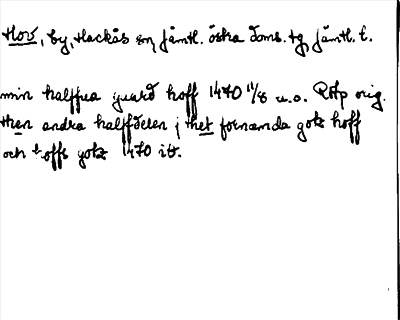 Hov, by, Hackås sn, Jämtl. östra doms. tg, Jämtl. l.
min halffua gaard hoff 1470 11/8 u.o. RAp orig.
then andra halffdelen j thet fornæmda gotz hoff
och hoffs gotz 1470 ib.